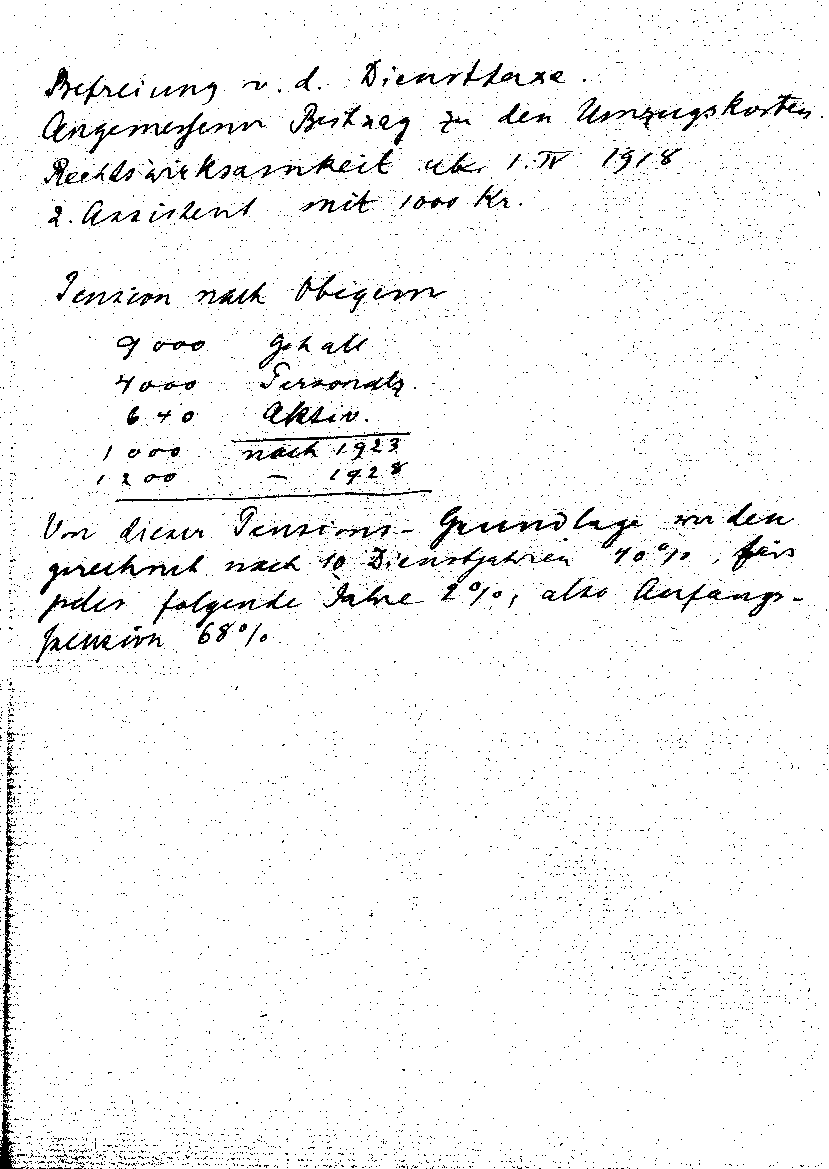 Befreiung v. d. Diensttaxe.
Angemessener Beitrag zu den Umzugskosten.
Rechtswirksamkeit ab 1. IV 1918
2. Assistent mit 1000 Kr.
Pension nach Obigem
9000 Gehalt
4000 Personalz.
640 Aktiv.
1000 nach 1923
1200 – 1928
Von dieser Pensions-Grundlage werden
gerechnet nach 10 Dienstjahren 40%, für
jedes folgende Jahre 2%, also Anfangs-
pension 68%